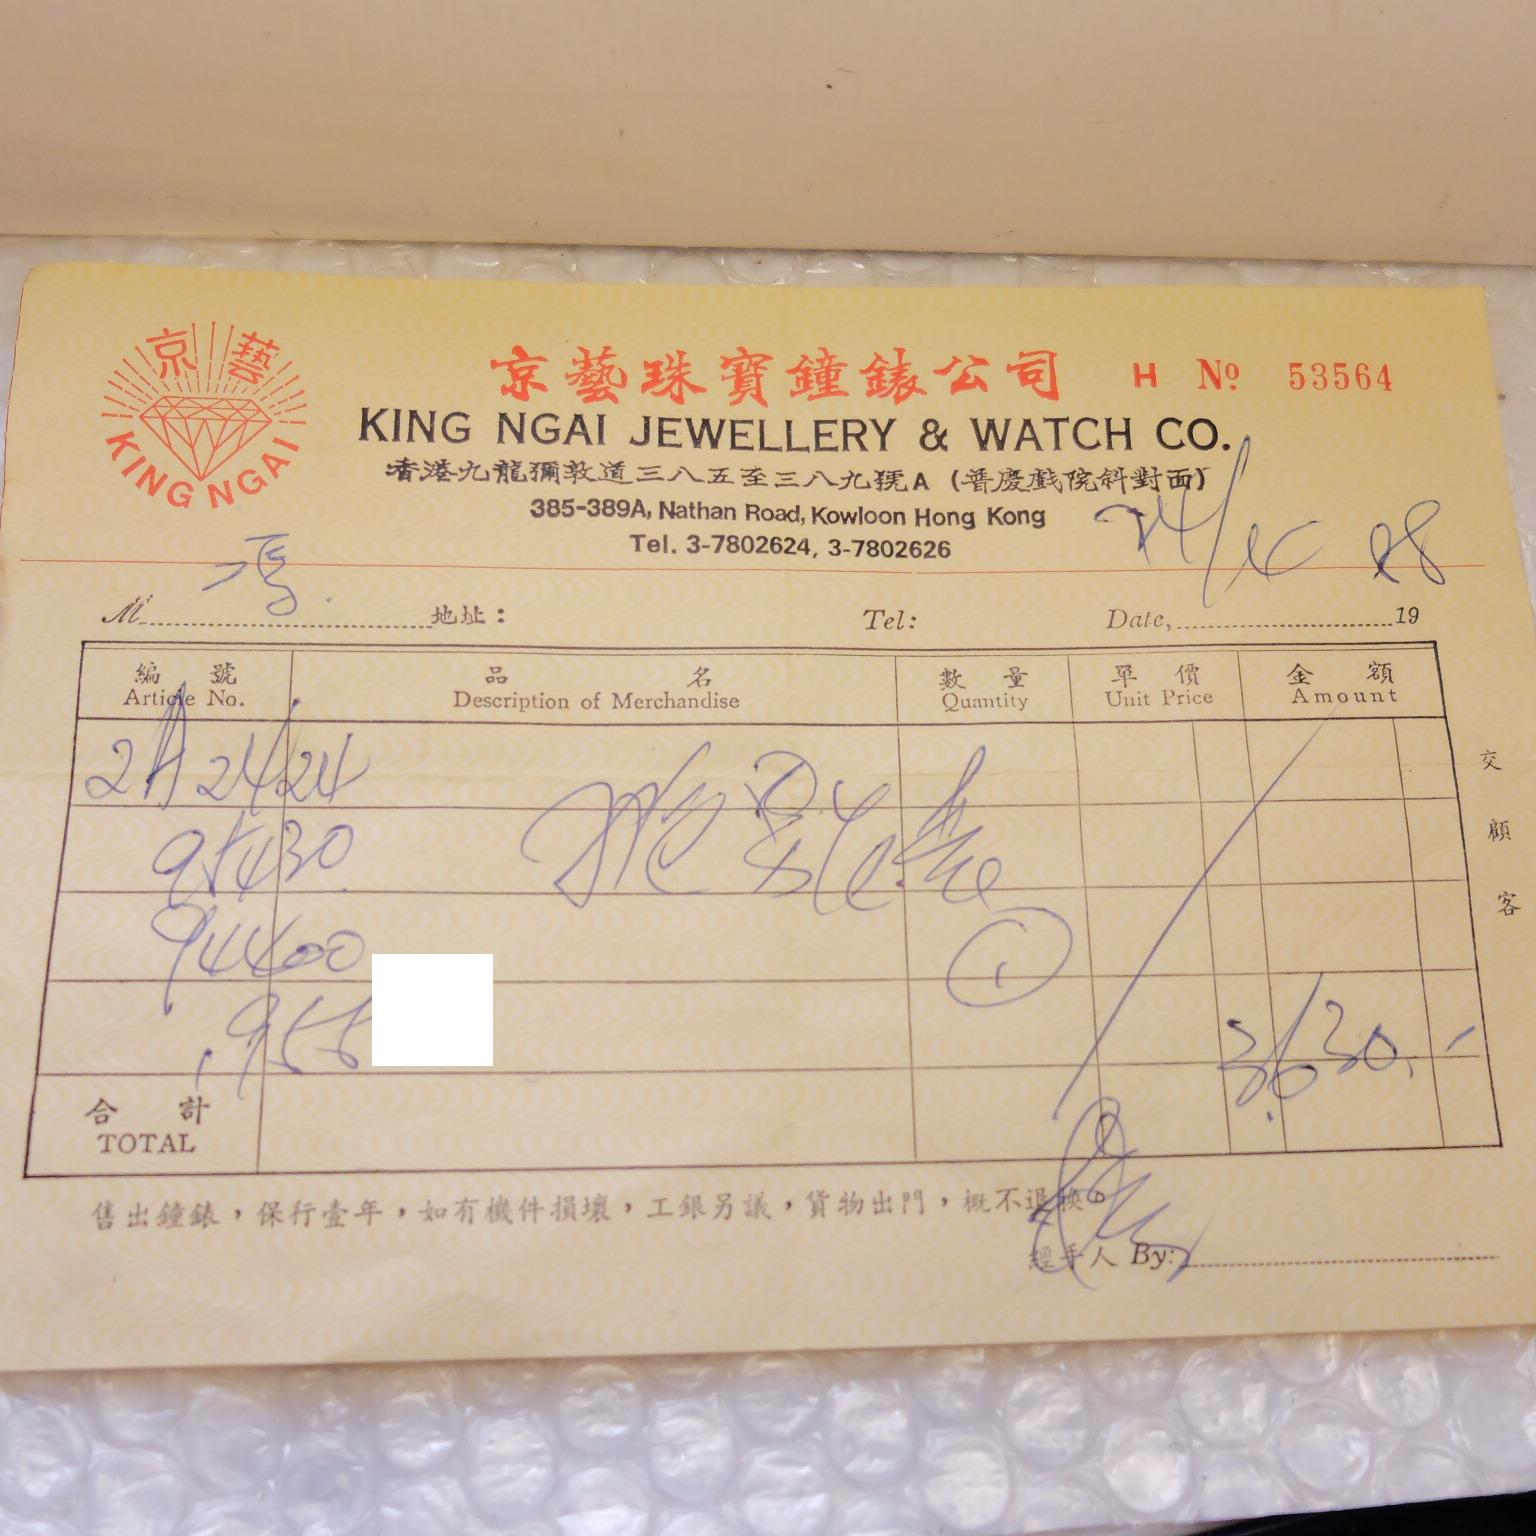 京藝
KING NGAI
京藝珠寶鐘錶公司 H Nº 53564
KING NGAI JEWELLERY & WATCH CO.
香港九龍彌敦道三八五至三八九號A (普慶戲院斜對面)
385-389A, Nathan Road, Kowloon Hong Kong
Tel. 3-7802624, 3-7802626
馮
M 地址: Tel: Date, 19
編號 品名 數量 單價 金額
Article No. Description of Merchandise Quantity Unit Price Amount
94400
①
955
3630.-
合計
TOTAL
售出鐘錶,保行壹年,如有機件損壞,工銀另議,貨物出門,概不退換。
經手人 By:
交顧客